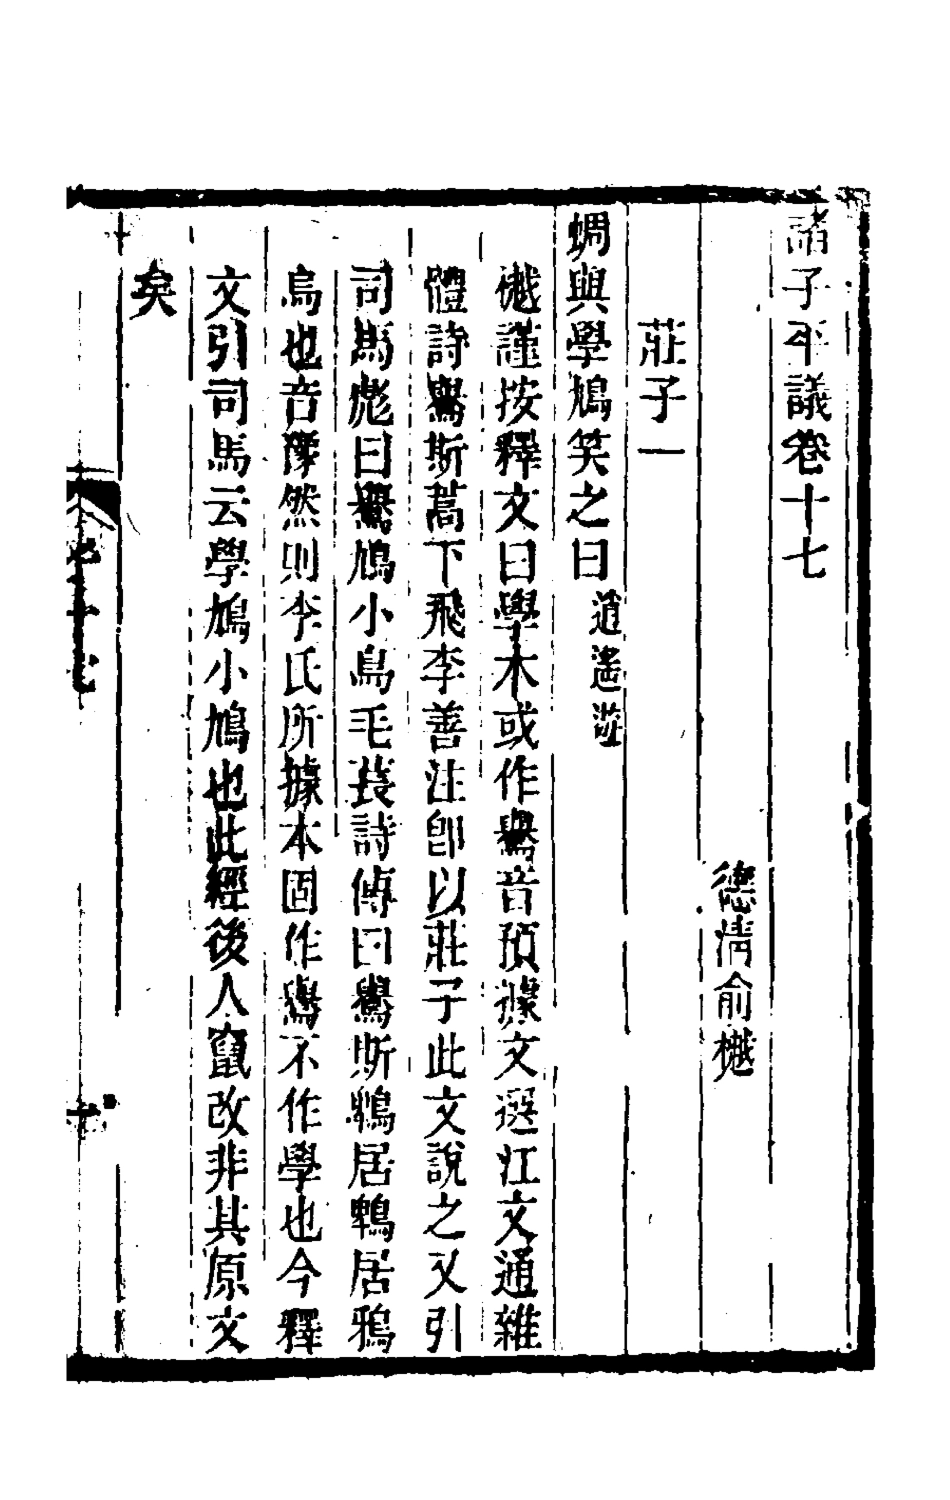 諸子平議卷十七
德清俞樾
莊子一
蜩與學鳩笑之曰逍遙遊
樾謹按釋文曰學本或作鷽音預據文選江文通雜
體詩鷽斯蒿下飛李善注卽以莊子此文說之又引
司馬彪曰鷽鳩小鳥毛萇詩傳曰鷽斯鵯居鵯居鴉
烏也音豫然則李氏所據本固作鷽不作學也今釋
文引司馬云學鳩小鳩也此經後人竄改非其原文
矣